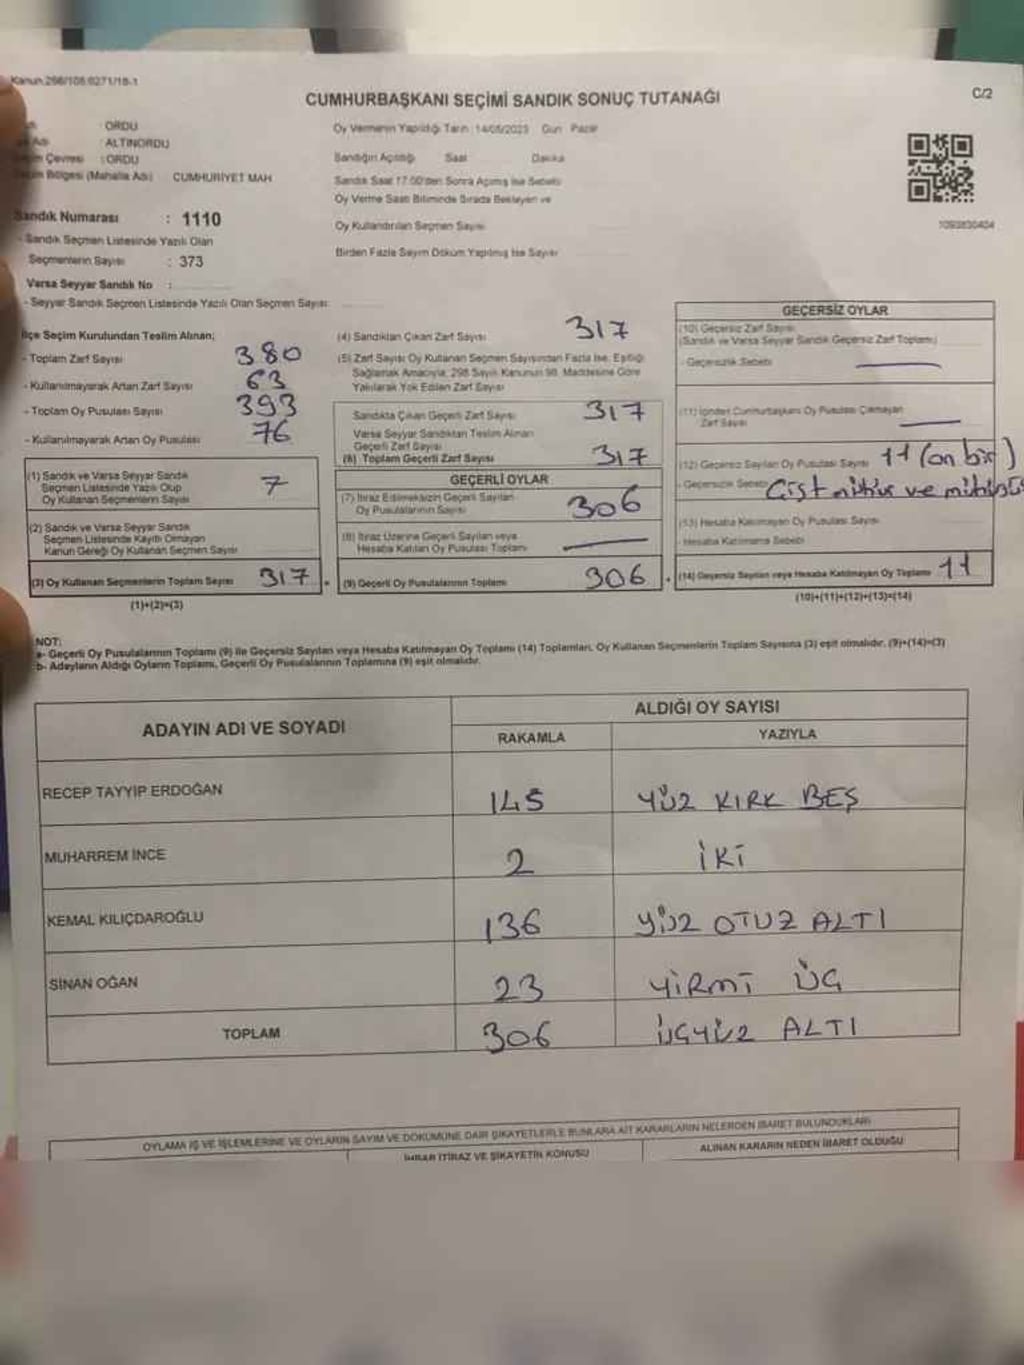 Kanun:298/108:6271/18-1
C/2
CUMHURBAŞKANI SEÇİMİ SANDIK SONUÇ TUTANAĞI
: ORDU
Adı : ALTINORDU
Seçim Çevresi : ORDU
Seçim Bölgesi (Mahalle Adı) CUMHURİYET MAH
Sandık Numarası : 1110
- Sandık Seçmen Listesinde Yazılı Olan
Seçmenlerin Sayısı : 373
Varsa Seyyar Sandık No :
- Seyyar Sandık Seçmen Listesinde Yazılı Olan Seçmen Sayısı:
Oy Vermenin Yapıldığı Tarih : 14/05/2023 Gün : Pazar
Sandığın Açıldığı Saat Dakika
Sandık Saat 17:00'den Sonra Açılmış İse Sebebi
Oy Verme Saati Bitiminde Sırada Bekleyen ve
Oy Kullandırılan Seçmen Sayısı
Birden Fazla Sayım Döküm Yapılmış İse Sayısı
1093830404
İlçe Seçim Kurulundan Teslim Alınan;
- Toplam Zarf Sayısı 380
- Kullanılmayarak Artan Zarf Sayısı 63
- Toplam Oy Pusulası Sayısı 393
- Kullanılmayarak Artan Oy Pusulası 76
(1) Sandık ve Varsa Seyyar Sandık
Seçmen Listesinde Yazılı Olup
Oy Kullanan Seçmenlerin Sayısı 7
(2) Sandık ve Varsa Seyyar Sandık
Seçmen Listesinde Kayıtlı Olmayan
Kanun Gereği Oy Kullanan Seçmen Sayısı
(3) Oy Kullanan Seçmenlerin Toplam Sayısı 317
(1)+(2)=(3)
(4) Sandıktan Çıkan Zarf Sayısı 317
(5) Zarf Sayısı Oy Kullanan Seçmen Sayısından Fazla İse, Eşitliği
Sağlamak Amacıyla, 298 Sayılı Kanunun 98. Maddesine Göre
Yakılarak Yok Edilen Zarf Sayısı
Sandıkta Çıkan Geçerli Zarf Sayısı 317
Varsa Seyyar Sandıktan Teslim Alınan
Geçerli Zarf Sayısı
(6) Toplam Geçerli Zarf Sayısı 317
GEÇERLİ OYLAR
(7) İtiraz Edilmeksizin Geçerli Sayılan
Oy Pusulalarının Sayısı 306
(8) İtiraz Üzerine Geçerli Sayılan veya
Hesaba Katılan Oy Pusulası Toplamı
(9) Geçerli Oy Pusulalarının Toplamı 306
GEÇERSİZ OYLAR
(10) Geçersiz Zarf Sayısı
(Sandık ve Varsa Seyyar Sandık Geçersiz Zarf Toplamı)
- Geçersizlik Sebebi
(11) İçinden Cumhurbaşkanı Oy Pusulası Çıkmayan
Zarf Sayısı
(12) Geçersiz Sayılan Oy Pusulası Sayısı 11 (on bir)
- Geçersizlik Sebebi Çift mühür ve
(13) Hesaba Katılmayan Oy Pusulası Sayısı
- Hesaba Katılmama Sebebi
(14) Geçersiz Sayılan veya Hesaba Katılmayan Oy Toplamı 11
(10)+(11)+(12)+(13)=(14)
NOT:
a- Geçerli Oy Pusulalarının Toplamı (9) ile Geçersiz Sayılan veya Hesaba Katılmayan Oy Toplamı (14) Toplamları, Oy Kullanan Seçmenlerin Toplam Sayısına (3) eşit olmalıdır. (9)+(14)=(3)
b- Adayların Aldığı Oyların Toplamı, Geçerli Oy Pusulalarının Toplamına (9) eşit olmalıdır.
ADAYIN ADI VE SOYADI
ALDIĞI OY SAYISI
RAKAMLA YAZIYLA
RECEP TAYYİP ERDOĞAN 145 YÜZ KIRK BEŞ
MUHARREM İNCE 2 İKİ
KEMAL KILIÇDAROĞLU 136 YÜZ OTUZ ALTI
SİNAN OĞAN 23 YİRMİ ÜÇ
TOPLAM 306 ÜÇYÜZ ALTI
OYLAMA İŞ VE İŞLEMLERİNE VE OYLARIN SAYIM VE DÖKÜMÜNE DAİR ŞİKAYETLERLE BUNLARA AİT KARARLARIN NELERDEN İBARET BULUNDUKLARI
İHBAR İTİRAZ VE ŞİKAYETİN KONUSU
ALINAN KARARIN NEDEN İBARET OLDUĞU